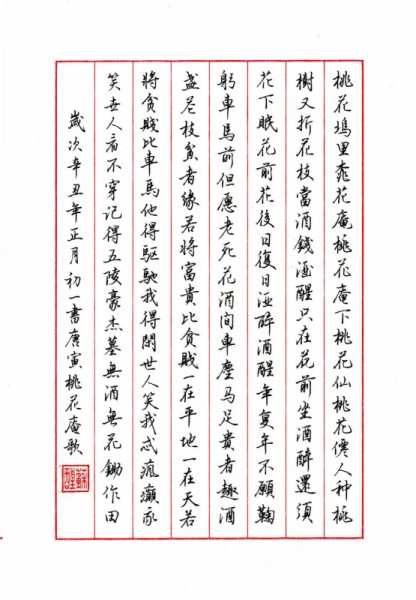 桃花塢里桃花庵桃花庵下桃花仙桃花僊人种桃
樹又折花枝當酒錢酒醒只在花前坐酒醉還須
花下眠花前花後日復日酒醉酒醒年复年不願鞠
躬車馬前但愿老死花酒間車塵马足貴者趣酒
盞花枝貧者缘若將富貴比貧賤一在平地一在天若
將貧賤比車馬他得驅馳我得閑世人笑我忒瘋癲我
笑世人看不穿记得五陵豪杰墓無酒無花鋤作田
歲次辛丑年正月初一書唐寅桃花庵歌